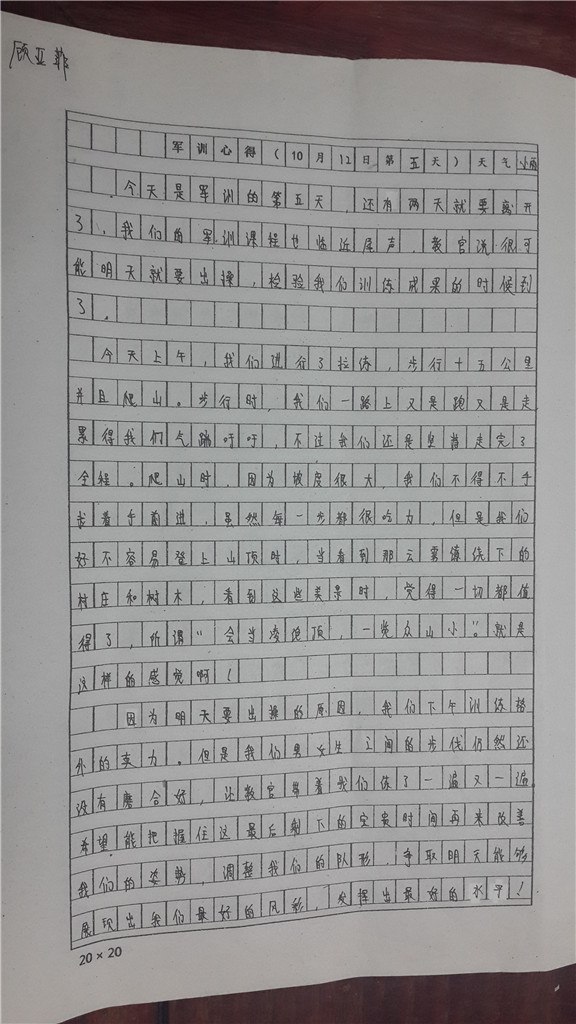 顾亚菲
军训心得(10月12日第五天)天气小雨
今天是军训的第五天,还有两天就要离开
了,我们的军训课程也临近尾声,教官说很可
能明天就要出操,检验我们训练成果的时候到
了。
今天上午,我们进行了拉练,步行十五公里
并且爬山。步行时,我们一路上又是跑又是走
累得我们气喘吁吁,不过我们还是坚持走完了
全程。爬山时,因为坡度很大,我们不得不手
拉着手前进,虽然每一步都很吃力,但是我们
好不容易登上山顶时,当看到那云雾缭绕下的
村庄和树木,看到这些美景时,觉得一切都值
得了,所谓“会当凌绝顶,一览众山小”。就是
这样的感觉啊!
因为明天要出操的原因,我们下午训练格
外的卖力。但是我们男女生之间的步伐仍然还
没有磨合好,让教官带着我们练了一遍又一遍
希望能把握住这最后剩下的宝贵时间再来改善
我们的姿势,调整我们的队形,争取明天能够
展现出我们最好的风彩,发挥出最好的水平!
20×20